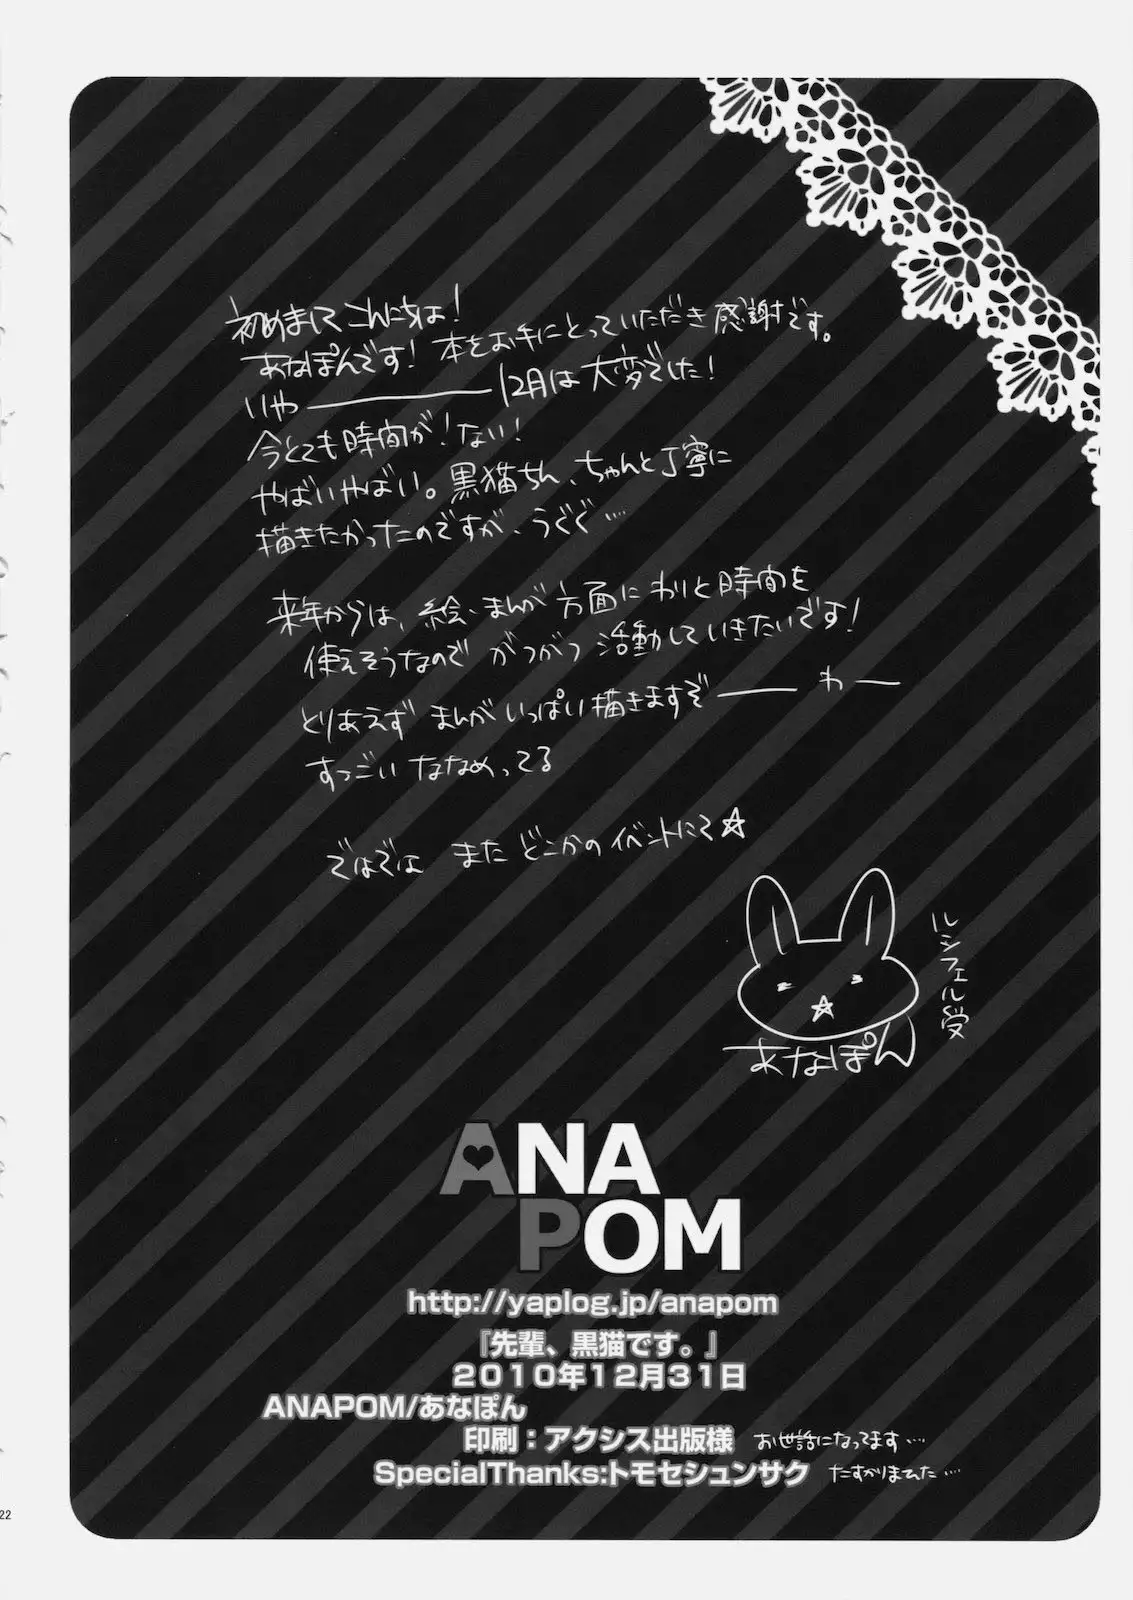 初めましてこんにちは!
あなぽんです!本をお手にとっていただき感謝です。
いやーーー12月は大変でした!
今とても時間が!ない!
やばいやばい。黒猫ちん、ちゃんと丁寧に
描きたかったのですが、うぐぐ…
来年からは、絵・まんが方面にわりと時間を
使えそうなのでがつがつ活動していきたいです!
とりあえずまんがいっぱい描きますぞーー わー
すっごいななめってる
ではでは またどこかのイベントにて☆
ルシフェル受
あなぽん
ANA
POM
http://yaplog.jp/anapom
『先輩、黒猫です。』
2010年12月31日
ANAPOM/あなぽん
印刷:アクシス出版様 お世話になってます…
SpecialThanks:トモセシュンサク たすかりました…
22